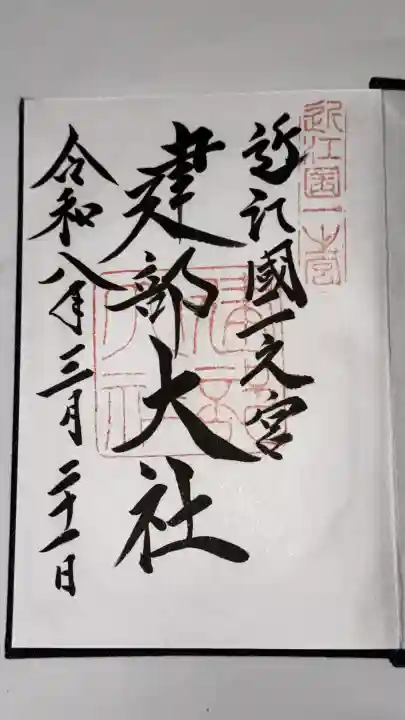 近江国一之宮
近江國一之宮
建部大社
令和八年三月二十一日